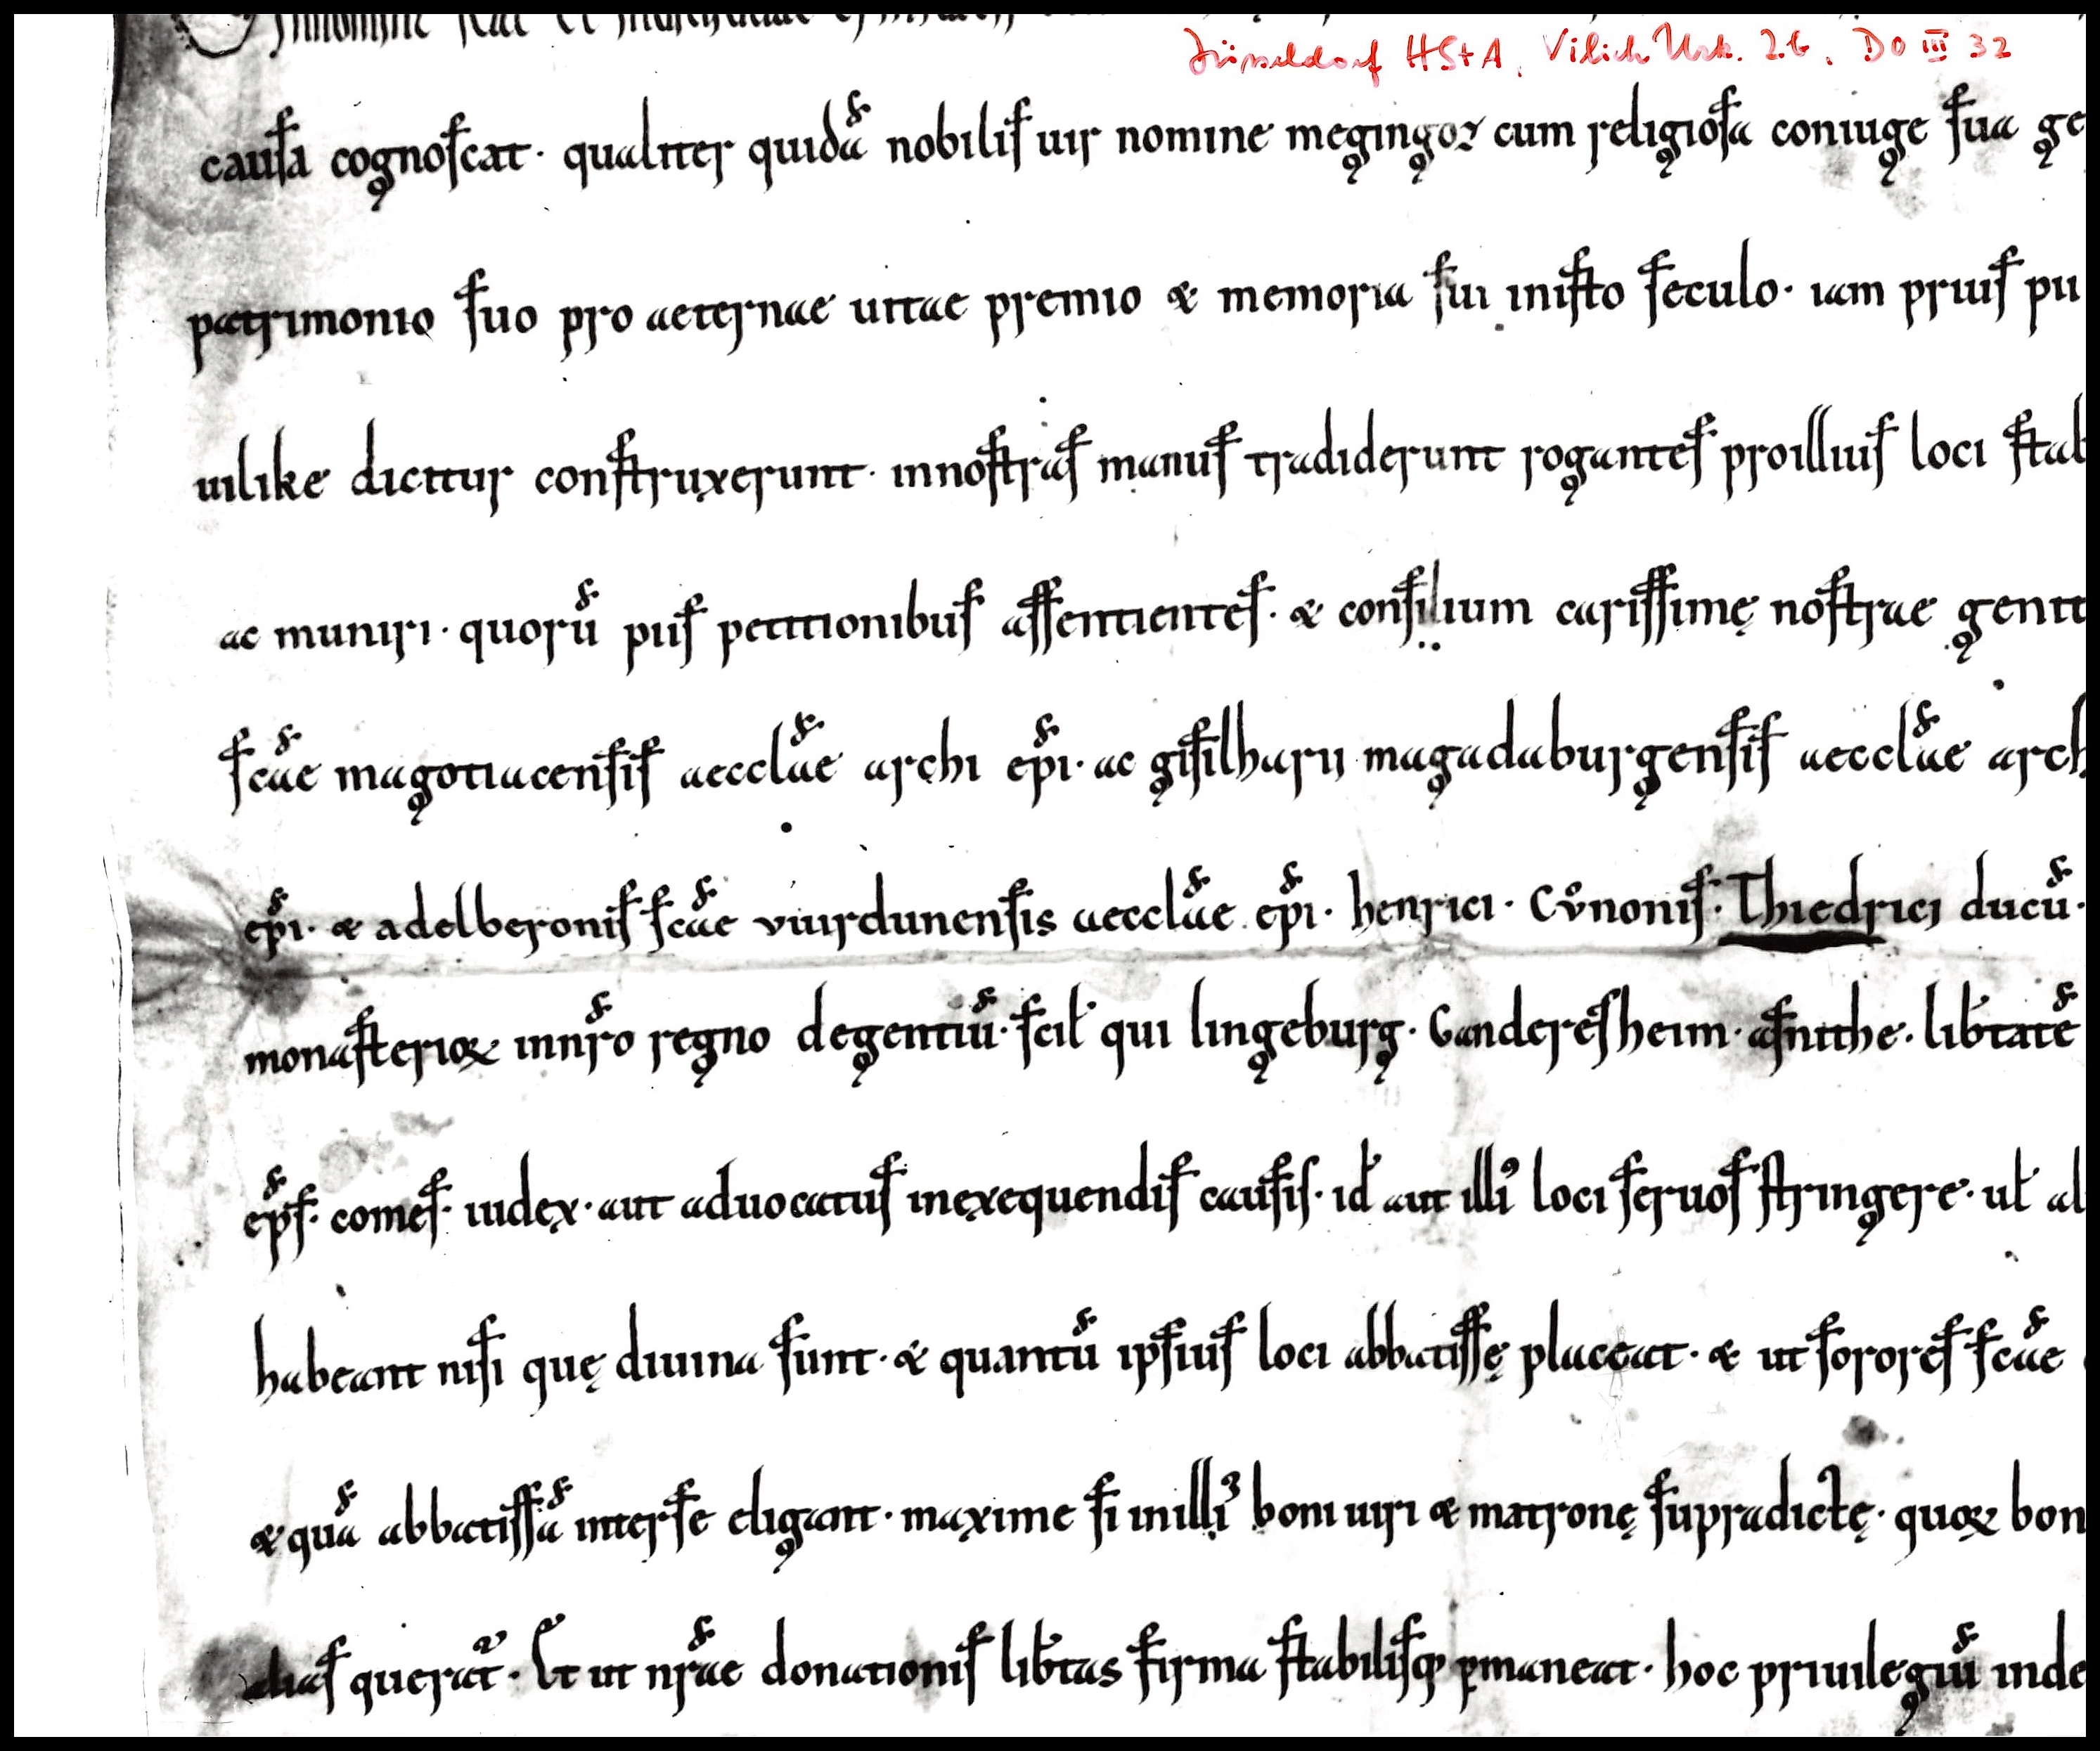 In nomine sčae et individuae
Düsseldorf HStA, Vilich Urk. 2 b. DO III 32
cauſa cognoſcat · qualiter quidā nobiliſ uir nomine megingoz cum religioſa coniuge ſua ge
patrimonio ſuo pro aeternae uitae premio & memoria ſui iniſto ſeculo · iam priuſ pu
uilike dicitur conſtruxerunt · innoſtraſ manuſ tradiderunt roganteſ proilliuſ loci ſtab
ac muniri · quorū piiſ petitionibuſ aſſentienteſ · & conſilium cariſſimę noſtrae genit
ſc̄ae magotiacenſiſ aeccl̄ae archi ep̄i · ac giſilharii magadaburgenſiſ aeccl̄ae arch
ep̄i · & adelberoniſ ſc̄ae viurdunenſis aeccl̄ae ep̄i · henrici · Cůnoniſ · Thiedrici ducū ·
monaſterioꝝ innr̄o regno degentiū · ſcil̕ qui lingeburg · Gandereſheim · aſnithe · lib̕tatē
ep̄ſ · comeſ · iudex · aut aduocatuſ inexequendiſ cauſiſ · id̕ aut illi᾿ loci ſeruoſ ſtringere · ul̕ al
habeant niſi quę diuina ſunt · & quantū ipſiuſ loci abbatiſſę placeat · & ut ſororeſ ſc̄ae
& quā abbatiſſā interſe eligant · maxime ſi inilli᾿ boni uiri & matronę ſupradictę · quoꝝ bon
aliaſ querat᷑ · Et ut nr̄ae donationiſ lib̕tas firma ſtabiliſq; ꝑmaneat · hoc priuilegiū inde